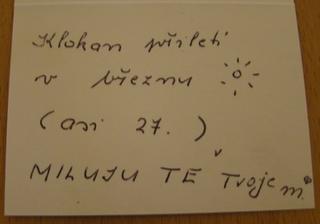 Klokan přiletí
v březnu
(asi 27.)
MILUJU TĚ Tvoje m.